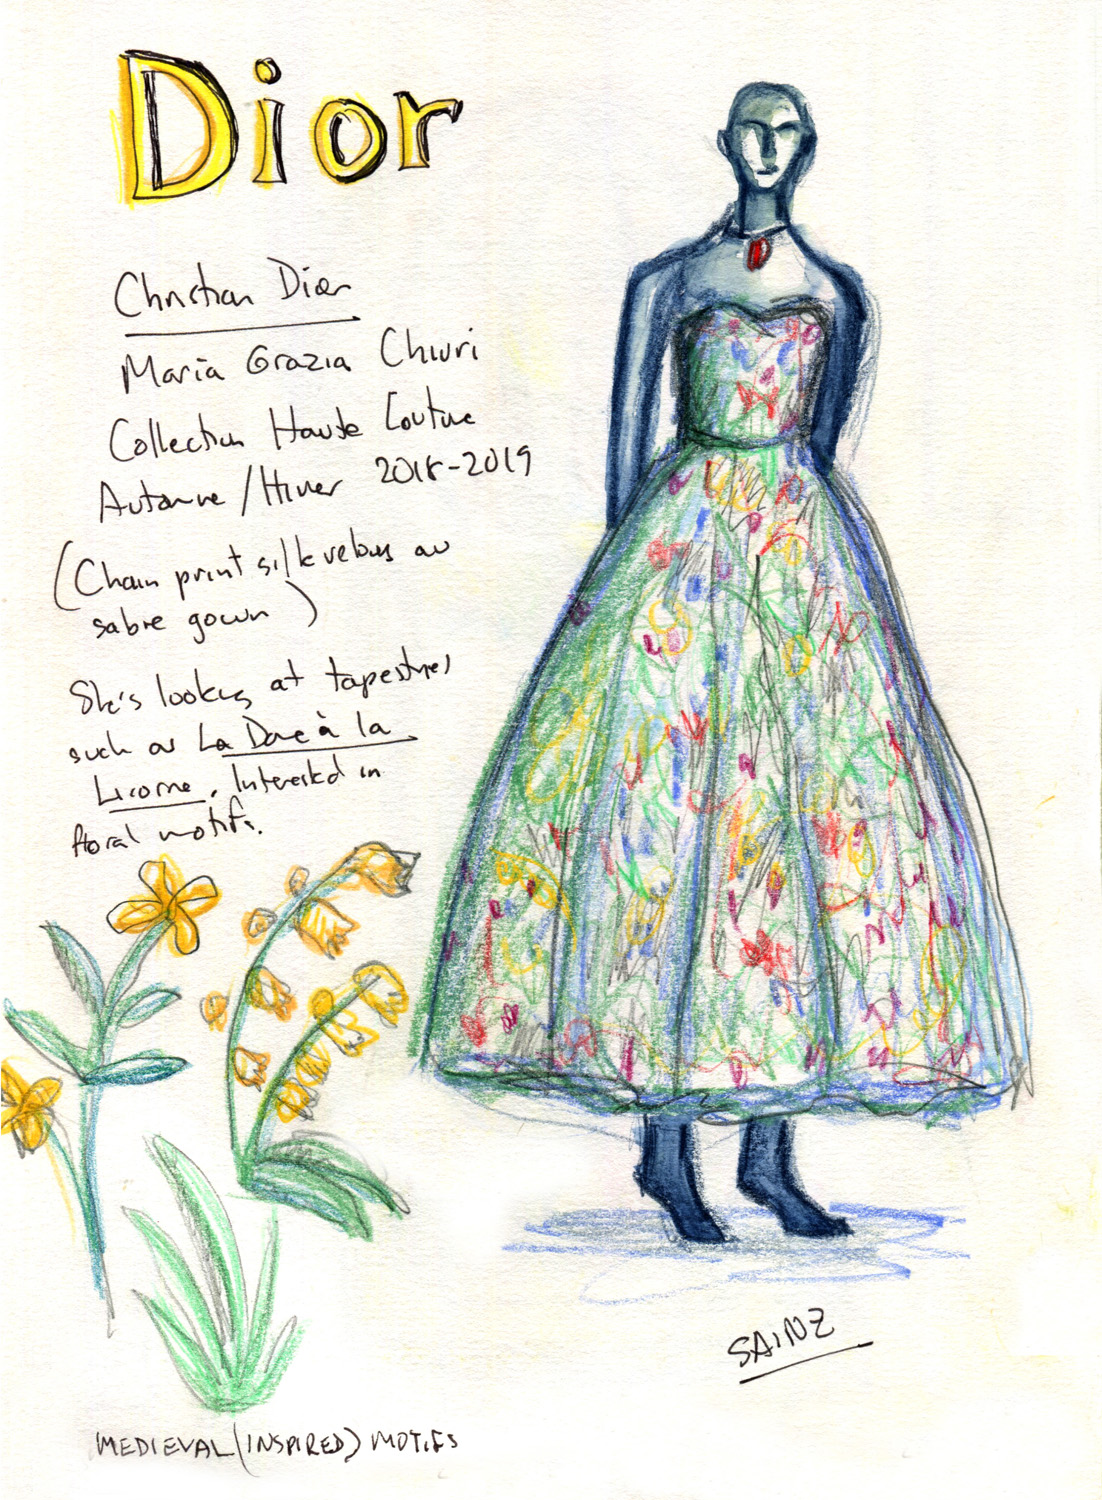 Dior
Christian Dior
Maria Grazia Chiuri
Collection Haute Couture
Automne / Hiver 2018-2019
(Chain print silk velours au
sabre gown)
She's looking at tapestries
such as La Dame à la
Licorne. Interested in
floral motifs.
SAINZ
MEDIEVAL (INSPIRED) MOTIFS